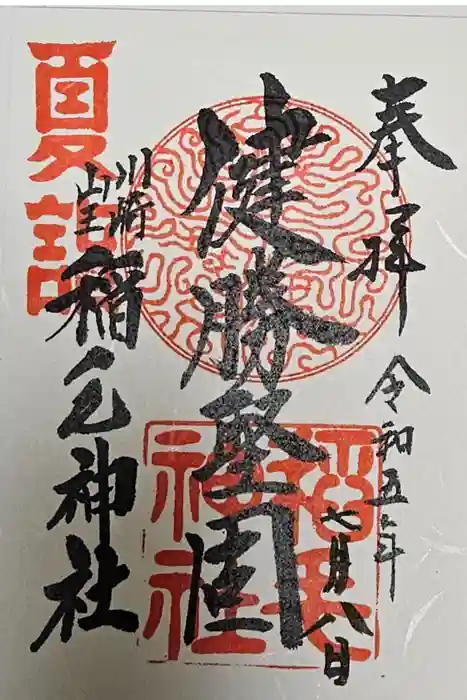 奉拝
令和五年
七月八日
健勝堅固
川崎
山王
稲毛神社
夏詣
稲毛
神社